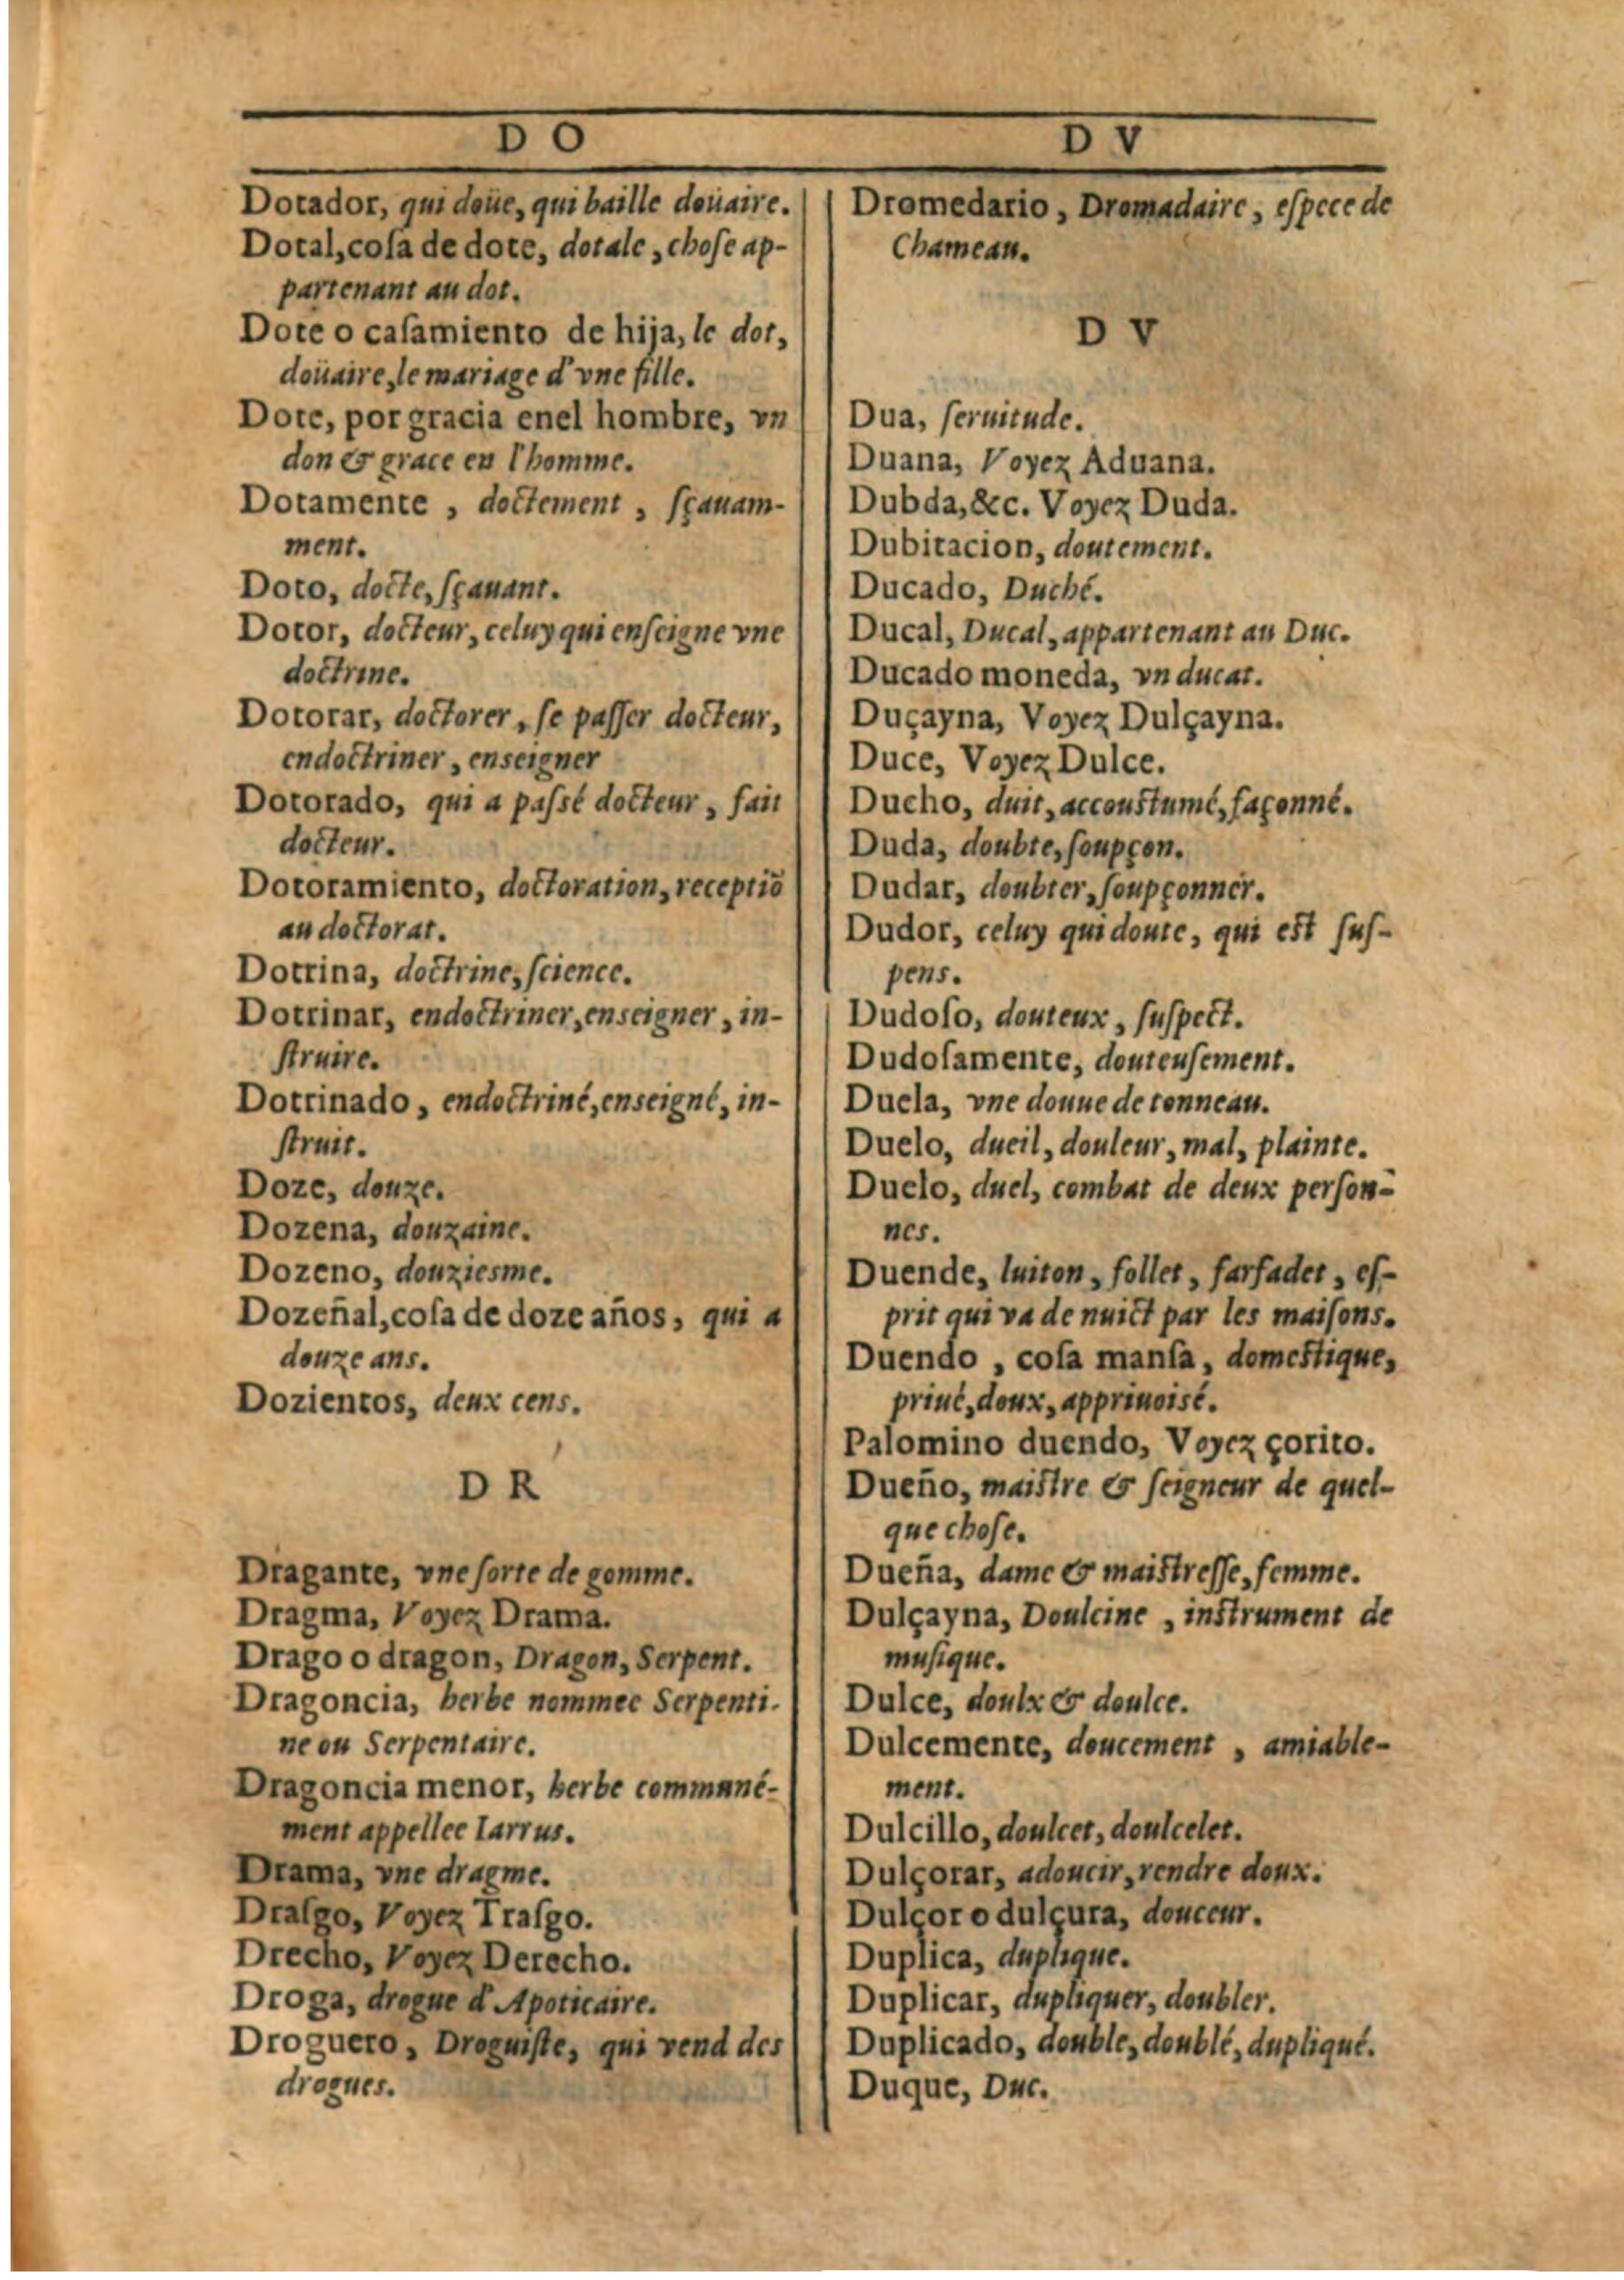 D O
D V
Dotador, qui doüe, qui baille doüaire.
Dotal, coſa de dote, dotale, choſe ap-
partenant au dot.
Dote o caſamiento de hija, le dot,
doüaire, le mariage d'vne fille.
Dote, por gracia enel hombre, vn
don & grace en l'homme.
Dotamente, doctement, ſçauam-
ment.
Doto, docte, ſçauant.
Dotor, docteur, celuy qui enſeigne vne
doctrine.
Dotorar, doctorer, ſe paſſer docteur,
endoctriner, enseigner
Dotorado, qui a paſsé docteur, fait
docteur.
Dotoramiento, doctoration, receptiõ
au doctorat.
Dotrina, doctrine, ſcience.
Dotrinar, endoctriner, enseigner, in-
ſtruire.
Dotrinado, endoctriné, enseigné, in-
ſtruit.
Doze, douze.
Dozena, douzaine.
Dozeno, douziesme.
Dozeñal, coſa de doze años, qui a
douze ans.
Dozientos, deux cens.
D R
Dragante, vne ſorte de gomme.
Dragma, Voyez Drama.
Drago o dragon, Dragon, Serpent.
Dragoncia, herbe nommee Serpenti-
ne ou Serpentaire.
Dragoncia menor, herbe communé-
ment appellee Iarrus.
Drama, vne dragme.
Draſgo, Voyez Traſgo.
Drecho, Voyez Derecho.
Droga, drogue d'Apoticaire.
Droguero, Droguiſte, qui vend des
drogues.
Dromedario, Dromadaire, eſpece de
Chameau.
D V
Dua, ſeruitude.
Duana, Voyez Aduana.
Dubda, &c. Voyez Duda.
Dubitacion, doutement.
Ducado, Duché.
Ducal, Ducal, appartenant au Duc.
Ducado moneda, vn ducat.
Duçayna, Voyez Dulçayna.
Duce, Voyez Dulce.
Ducho, duit, accouſtumé, façonné.
Duda, doubte, ſoupçon.
Dudar, doubter, ſoupçonner.
Dudor, celuy qui doute, qui eſt ſuſ-
pens.
Dudoſo, douteux, ſuſpect.
Dudoſamente, douteuſement.
Duela, vne douue de tonneau.
Duelo, dueil, douleur, mal, plainte.
Duelo, duel, combat de deux perſon-
nes.
Duende, luiton, follet, farfadet, eſ-
prit qui va de nuict par les maiſons.
Duendo, coſa manſa, domeſtique,
priué, doux, appriuoisé.
Palomino duendo, Voyez çorito.
Dueño, maiſtre & ſeigneur de quel-
que choſe.
Dueña, dame & maiſtreſſe, femme.
Dulçayna, Doulcine, inſtrument de
muſique.
Dulce, doulx & doulce.
Dulcemente, doucement, amiable-
ment.
Dulcillo, doulcet, doulcelet.
Dulçorar, adoucir, rendre doux.
Dulçor o dulçura, douceur.
Duplica, duplique.
Duplicar, dupliquer, doubler.
Duplicado, double, doublé, dupliqué.
Duque, Duc.